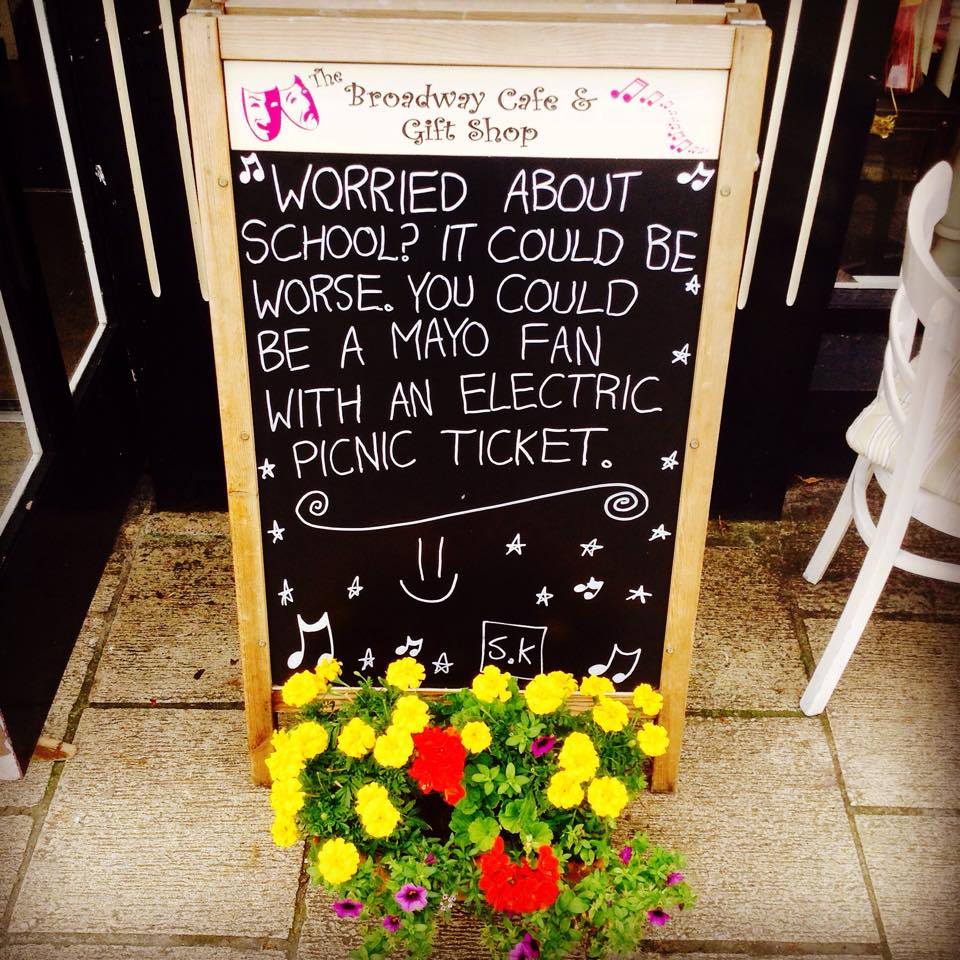 The Broadway Cafe &
Gift Shop
WORRIED ABOUT
SCHOOL? IT COULD BE
WORSE. YOU COULD
BE A MAYO FAN
WITH AN ELECTRIC
PICNIC TICKET.
S.K